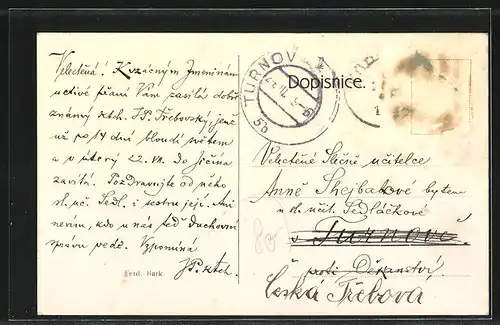 Velectěná! K vzácným Jmeninám
uctivé přání Vám zasílá dobře
známý katech. J.P. Třebovský, jenž
už po 14 dní bloudí světem
a v úterý 22. VII. do Jičína
zavítá. Pozdravujte od něho
sl. uč. Sedl. i sestru její. Ani
nevím, kdo u nás teď duchovní
správu vede. Vzpomíná
JP. katech.
Ferd. Back
TURNOV
5b
Dopisnice.
Velectěné Slečně učitelce
Anně Shejbalové bytem
u sl. učit. Sedláčkové
v Turnově.
proti Děkanství
Česká Třebova